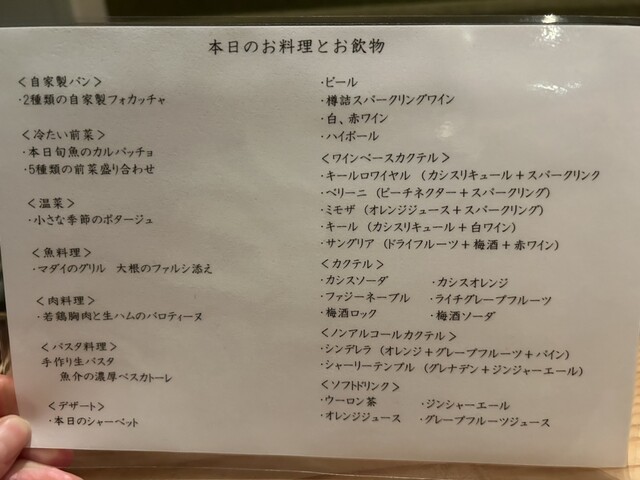 本日のお料理とお飲物
＜自家製パン＞
・2種類の自家製フォカッチャ
＜冷たい前菜＞
・本日旬魚のカルパッチョ
・5種類の前菜盛り合わせ
＜温菜＞
・小さな季節のポタージュ
＜魚料理＞
・マダイのグリル　大根のファルシ添え
＜肉料理＞
・若鶏胸肉と生ハムのバロティーヌ
＜パスタ料理＞
手作り生パスタ
魚介の濃厚ペスカトーレ
＜デザート＞
・本日のシャーベット
・ビール
・樽詰スパークリングワイン
・白、赤ワイン
・ハイボール
＜ワインベースカクテル＞
・キールロワイヤル（カシスリキュール＋スパークリンク
・ベリーニ（ピーチネクター＋スパークリング）
・ミモザ（オレンジジュース＋スパークリング）
・キール（カシスリキュール＋白ワイン）
・サングリア（ドライフルーツ＋梅酒＋赤ワイン）
＜カクテル＞
・カシスソーダ　・カシスオレンジ
・ファジーネーブル　・ライチグレープフルーツ
・梅酒ロック　・梅酒ソーダ
＜ノンアルコールカクテル＞
・シンデレラ（オレンジ＋グレープフルーツ＋パイン）
・シャーリーテンプル（グレナデン＋ジンジャーエール）
＜ソフトドリンク＞
・ウーロン茶　・ジンシャーエール
・オレンジジュース　・グレープフルーツジュース